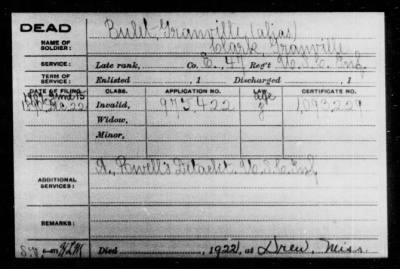 DEAD
NAME OF SOLDIER:
Bulit, Granville (alias)
Clark, Granville
SERVICE:
Late rank, Co. E, 47 Reg't U.S.C. Inf.
TERM OF SERVICE:
Enlisted , 1 Discharged , 1
DATE OF FILING. CLASS. APPLICATION NO. LAW. CERTIFICATE NO.
Invalid, 975422 1,093,229
Widow,
Minor,
ADDITIONAL SERVICES:
A, Powell's Detacht. U.S.C. Inf
REMARKS:
Died , 1922, at Drew, Miss.